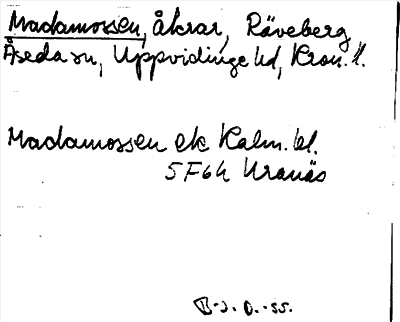 Madamossen, åkrar, Räveberg
Åseda sn, Uppvidinge hd, Kron. l.
Madamossen ek Kalm. bl.
5F6h Kranäs